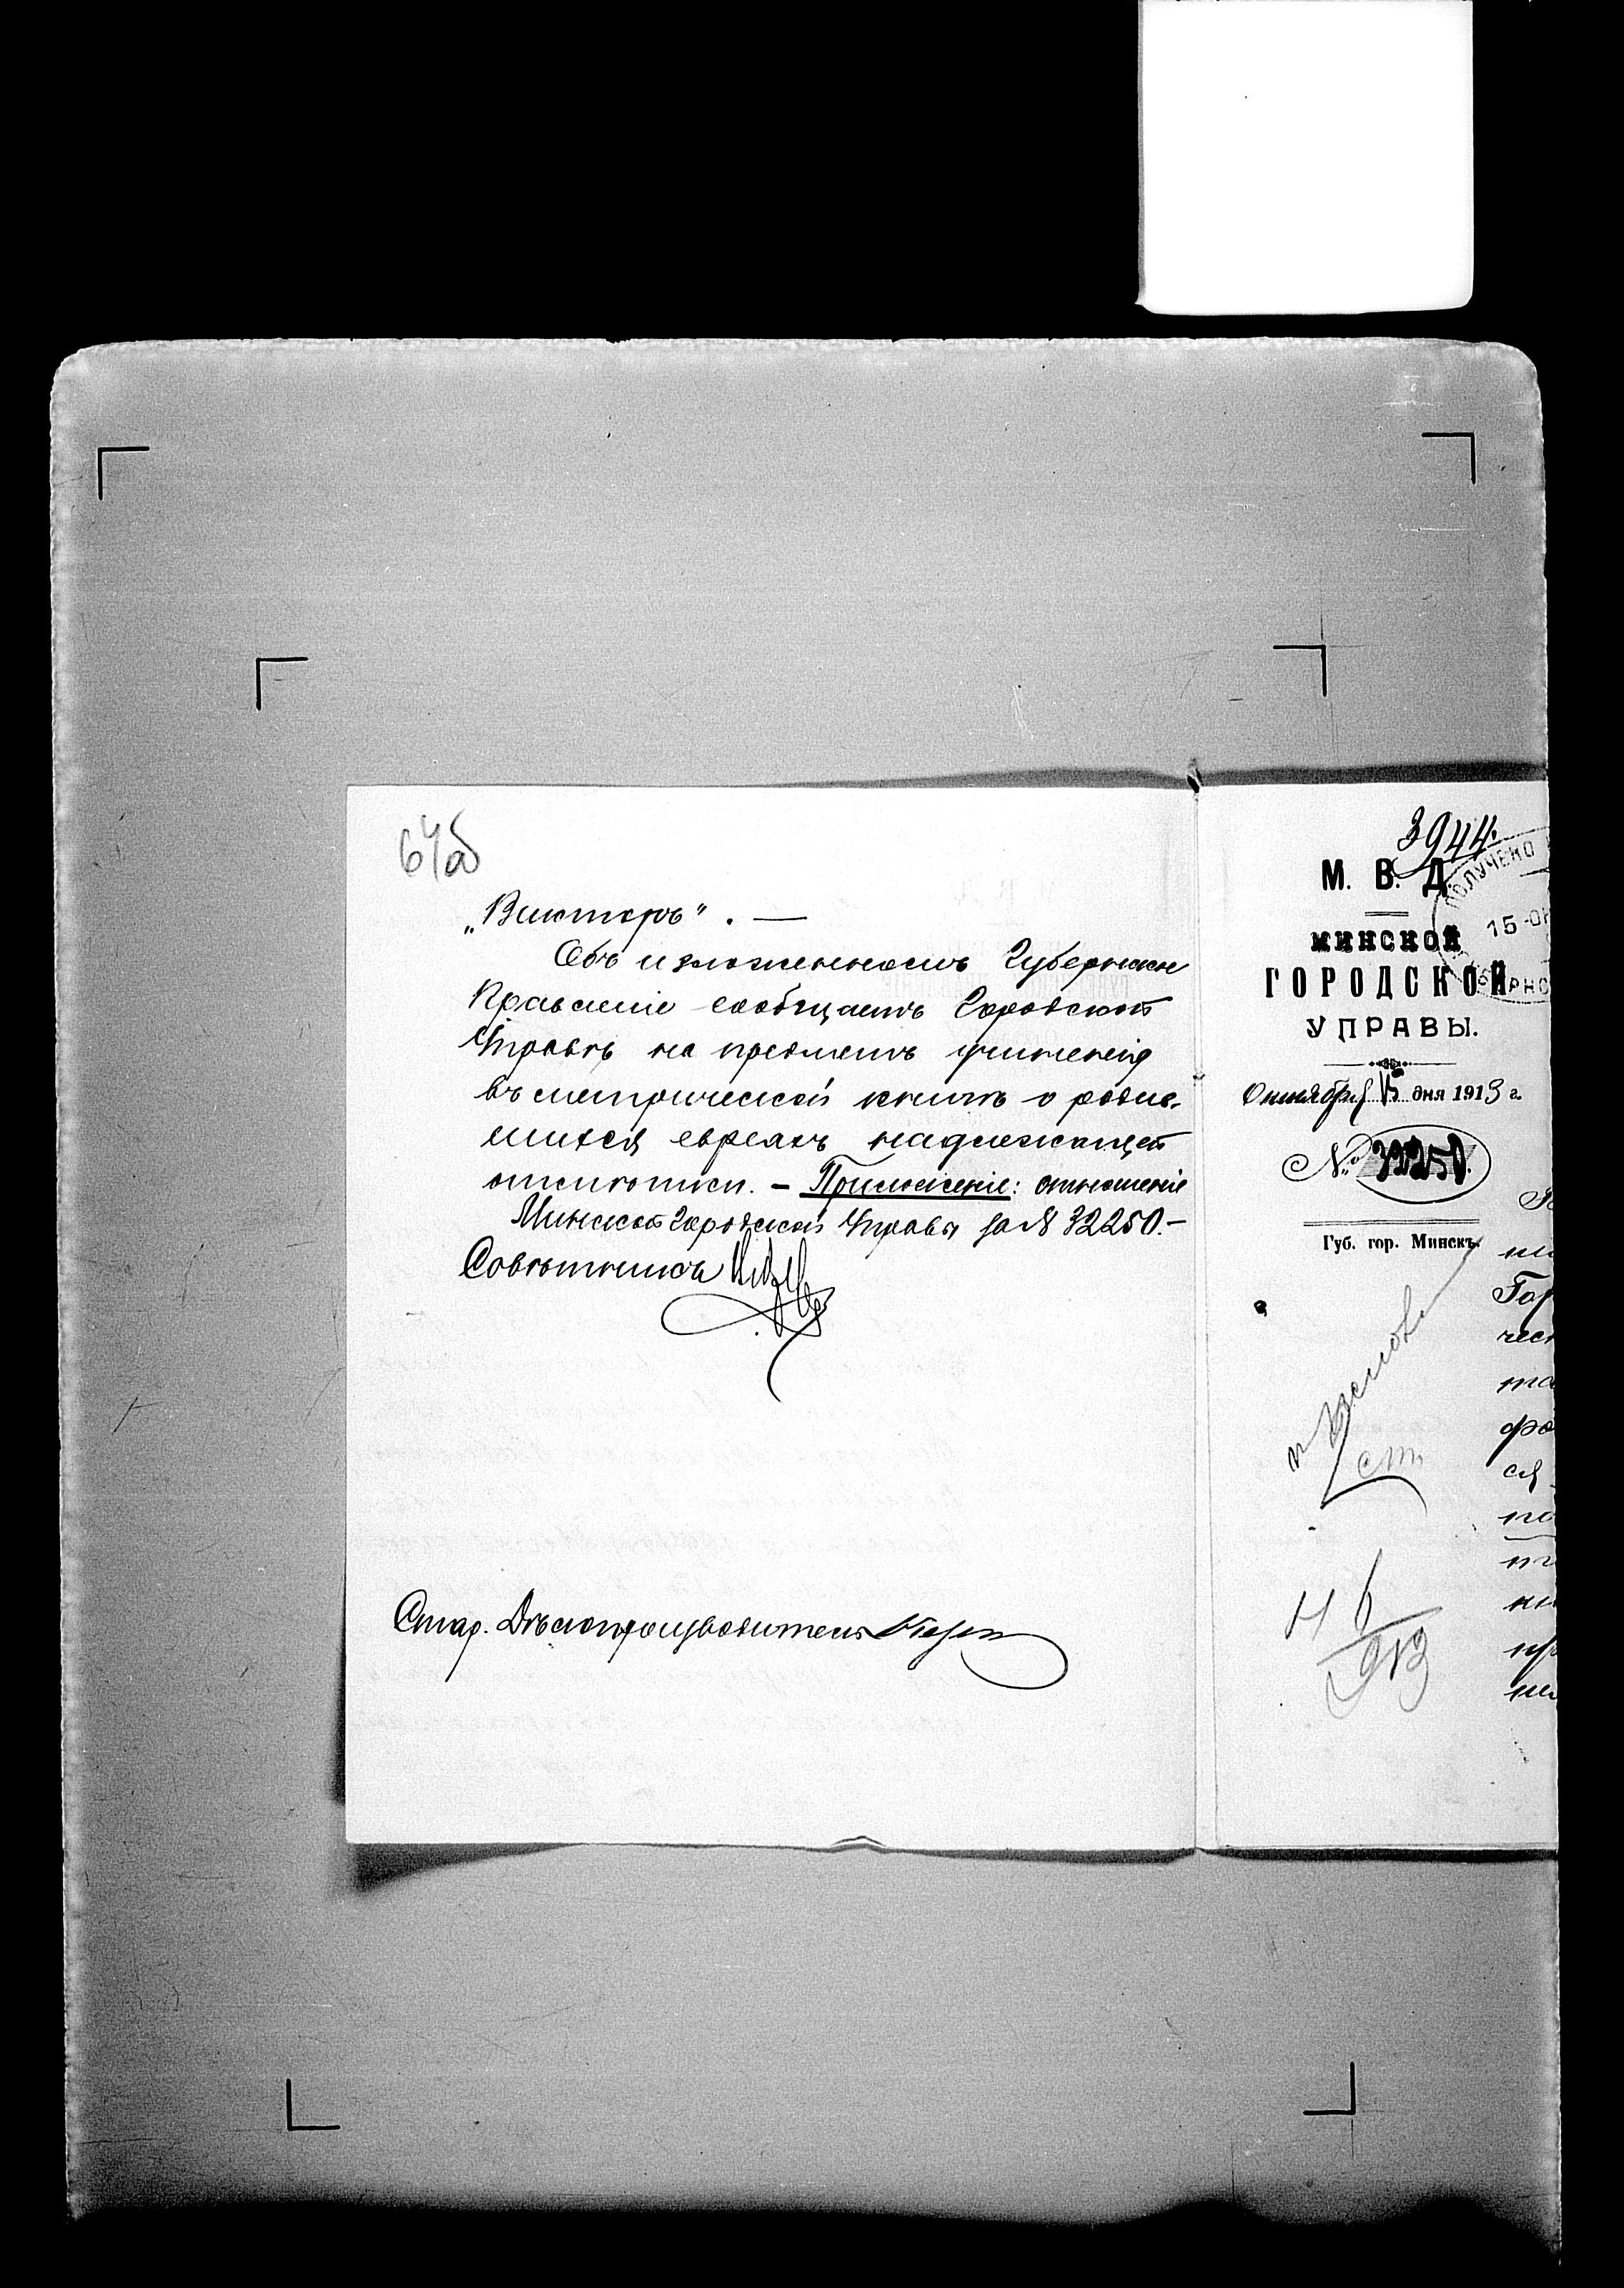 64об
„Викторъ“. —
Объ изложенномъ Губернское
Правленіе сообщаетъ Городской
Управѣ на предметъ учиненія
въ метрической книгѣ о родив-
шихся евреяхъ надлежащей
отмѣтки. — Приложеніе: отношеніе
Минской Городской Управы за № 32250. —
Совѣтникъ
Стар. Дѣлопроизводитель
3944.
М. В. Д.
МИНСКОЙ
ГОРОДСКОЙ
УПРАВЫ.
Октября 15 дня 1913 г.
№ 32250.
Губ. гор. Минскъ.
ПОЛУЧЕНО
15 -ОК
ст.
Гор
чес
та
фо
ся
по